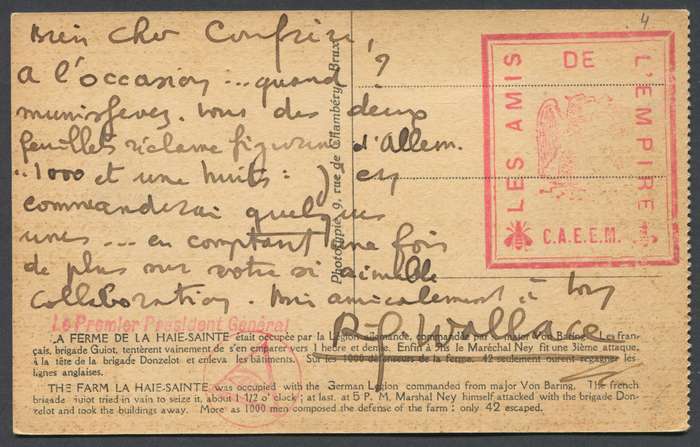 4
Bien cher Confrère,
A l'occasion ... quand ?
vous des deux
feuilles réclame figurine d'Allem.
.. 1000 et une nuits : ) en
commanderai quelques
unes ... en comptant une fois
de plus sur votre si aimable
collaboration. Bien amicalement à vous
R-J Wallace
Phototypie 9, rue de Chambéry, Brux
LES AMIS
DE
L'EMPIRE
C.A.E.E.M.
Le Premier Président Général
LA FERME DE LA HAIE-SAINTE était occupée par la Légion allemande, commandée par major Von Baring. fran-
çais, brigade Guiot, tentèrent vainement de s'en emparer vers 1 heure et demie. Enfin à 5 hs le Maréchal Ney fit une 3ième attaque,
à la tête de la brigade Donzelot et enleva les bâtiments. Sur les 1000 défenseurs de la ferme, 42 seulement eurent regagner les
lignes anglaises.
THE FARM LA HAIE-SAINTE was occupied with the German Legion commanded from major Von Baring. The french
brigade Guiot tried in vain to seize it, about 1 1/2 o' clock; at last, at 5 P. M. Marshal Ney himself attacked with the brigade Don-
zelot and took the buildings away. More as 1000 men composed the defense of the farm: only 42 escaped.